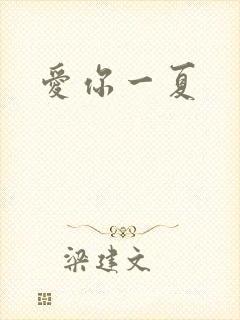 愛你一夏
梁建文